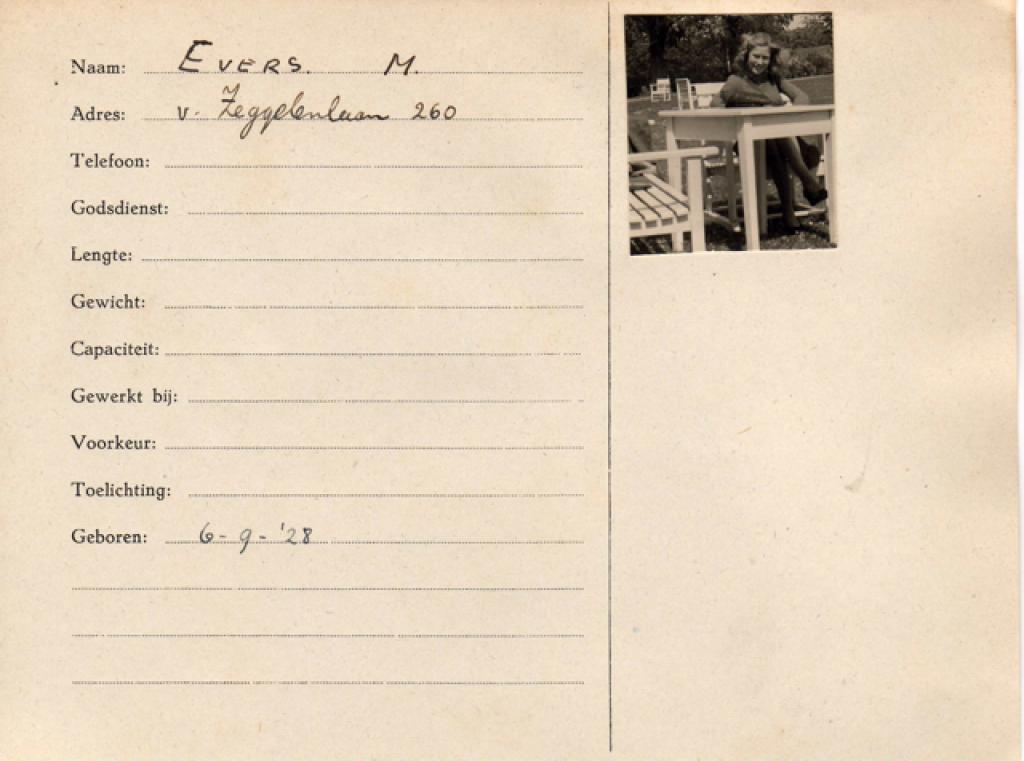 Naam: EVERS. M.
Adres: v. Zeggelenlaan 260
Telefoon:
Godsdienst:
Lengte:
Gewicht:
Capaciteit:
Gewerkt bij:
Voorkeur:
Toelichting:
Geboren: 6-9-'28